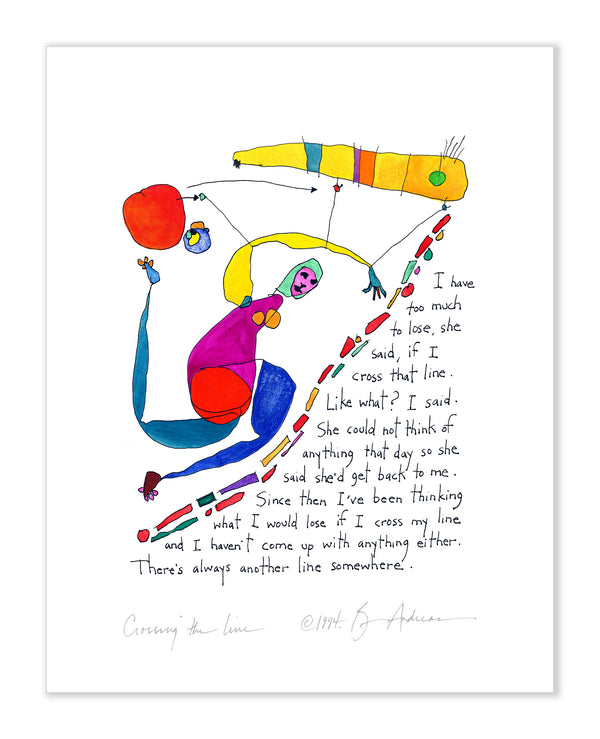 I have
too much
to lose, she
said, if I
cross that line.
Like what? I said.
She could not think of
anything that day so she
said she'd get back to me.
Since then I've been thinking
what I would lose if I cross my line
and I haven't come up with anything either.
There's always another line somewhere.
Crossing the line ©1994. Andreas